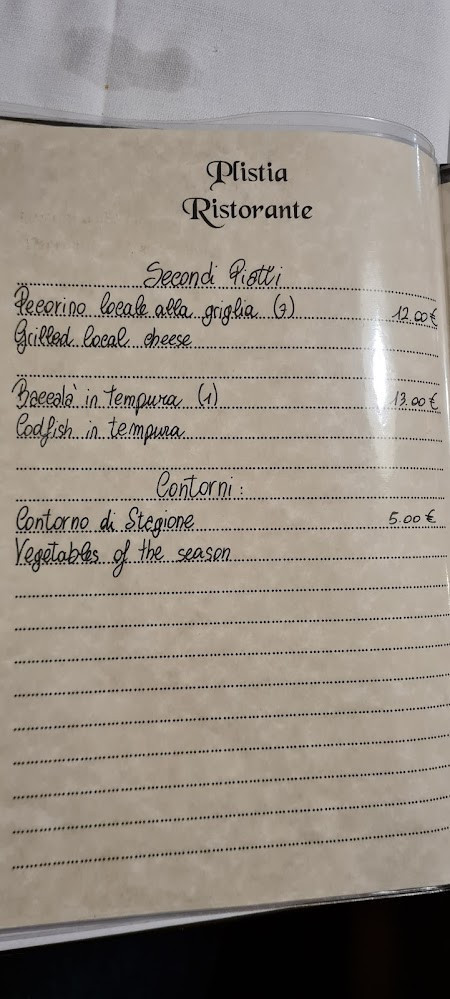 Plistia
Ristorante
Secondi Piatti
Pecorino locale alla griglia (7) 12.00€
Grilled local cheese
Baccalà in tempura (1) 13.00€
Codfish in tempura
Contorni:
Contorno di Stagione 5.00€
Vegetables of the season